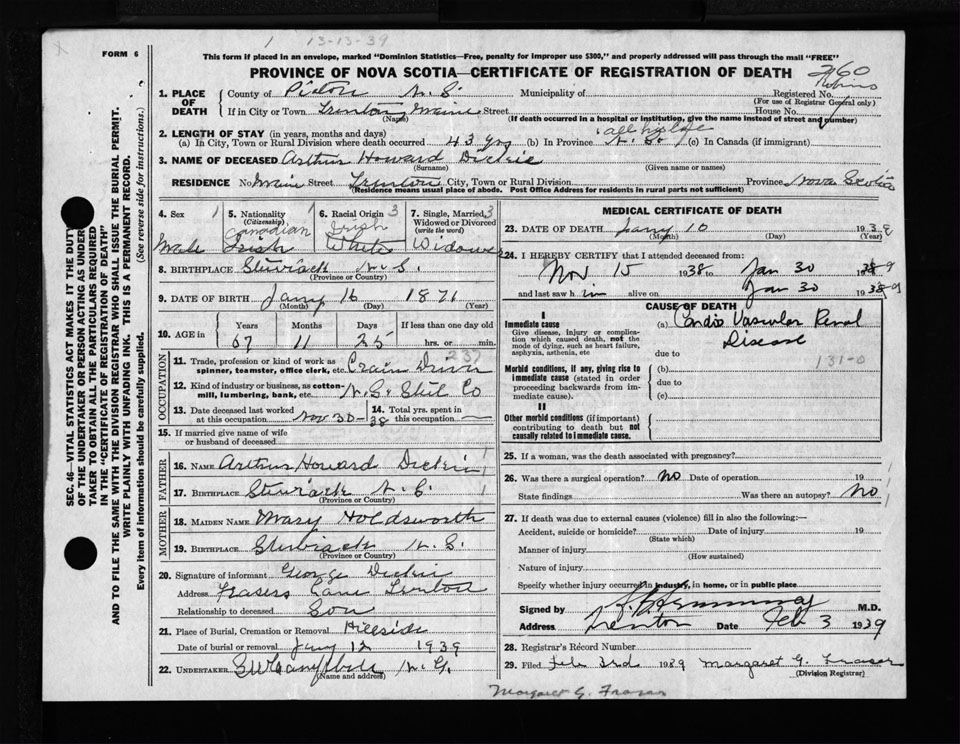 1 13-13-39
FORM 6
This form if placed in an envelope, marked "Dominion Statistics—Free, penalty for improper use $300," and properly addressed will pass through the mail "FREE"
PROVINCE OF NOVA SCOTIA—CERTIFICATE OF REGISTRATION OF DEATH
SEC. 46—VITAL STATISTICS ACT MAKES IT THE DUTY
OF THE UNDERTAKER OR PERSON ACTING AS UNDER-
TAKER TO OBTAIN ALL THE PARTICULARS REQUIRED
IN THE "CERTIFICATE OF REGISTRATION OF DEATH"
AND TO FILE THE SAME WITH THE DIVISION REGISTRAR WHO SHALL ISSUE THE BURIAL PERMIT.
WRITE PLAINLY WITH UNFADING INK. THIS IS A PERMANENT RECORD.
Every item of information should be carefully supplied. (See reverse side for instructions.)
1. PLACE OF DEATH County of Pictou N.S. Municipality of Registered No.
(For use of Registrar General only)
If in City or Town Trenton Maine Street House No.
(Name) (If death occurred in a hospital or institution, give the name instead of street and number)
2. LENGTH OF STAY (in years, months and days) all his life
(a) In City, Town or Rural Division where death occurred 43 yrs (b) In Province N.S. (c) In Canada (if immigrant)
3. NAME OF DECEASED Arthur Howard Dickie
(Surname) (Given name or names)
RESIDENCE No. Maine Street Trenton City, Town or Rural Division Province Nova Scotia
(Residence means usual place of abode. Post Office Address for residents in rural parts not sufficient)
4. Sex 1 Male
5. Nationality 1 (Citizenship) Canadian Irish
6. Racial Origin 3 Irish White
7. Single, Married, 3 Widowed or Divorced (write the word) Widower
8. BIRTHPLACE N.S.
(Province or Country)
9. DATE OF BIRTH Jany 16 1871
(Month) (Day) (Year)
10. AGE in Years Months Days If less than one day old
67 11 25 hrs. or min.
OCCUPATION
11. Trade, profession or kind of work as spinner, teamster, office clerk, etc. Crain Driver 237
12. Kind of industry or business, as cotton-mill, lumbering, bank, etc. N.S. Steel Co
13. Date deceased last worked at this occupation Nov 30 - 38
14. Total yrs. spent in this occupation —
15. If married give name of wife or husband of deceased
FATHER
16. NAME Arthur Howard Dickie
17. BIRTHPLACE N.S.
MOTHER
18. MAIDEN NAME Mary Holdsworth
19. BIRTHPLACE N.S.
(Province or Country)
20. Signature of informant George Dickie
Address Frasers Lane Trenton
Relationship to deceased Son
21. Place of Burial, Cremation or Removal Hillside
Date of burial or removal Jany 12 1939
22. UNDERTAKER Campbell N.G.
MEDICAL CERTIFICATE OF DEATH
23. DATE OF DEATH Jany 10 1939
(Month) (Day) (Year)
24. I HEREBY CERTIFY that I attended deceased from:
Nov 15 1938 to Jan 30 1939
and last saw him alive on Jan 30 1939
CAUSE OF DEATH
I
Immediate cause
Give disease, injury or complication which caused death, not the mode of dying, such as heart failure, asphyxia, asthenia, etc
(a) Cardio Vascular Renal Disease
due to
131-0
Morbid conditions, if any, giving rise to immediate cause (stated in order proceeding backwards from immediate cause).
(b)
due to
(c)
II
Other morbid conditions (if important) contributing to death but not causally related to immediate cause.
25. If a woman, was the death associated with pregnancy?
26. Was there a surgical operation? No Date of operation 19
State findings Was there an autopsy? No
27. If death was due to external causes (violence) fill in also the following:—
Accident, suicide or homicide? Date of injury 19
(State which)
Manner of injury
(How sustained)
Nature of injury
Specify whether injury occurred in industry, in home, or in public place
Signed by M.D.
Address Trenton Date Feb 3 1939
28. Registrar's Record Number
29. Filed Feb 3rd 1939 Margaret G. Fraser
(Division Registrar)
Margaret G. Fraser